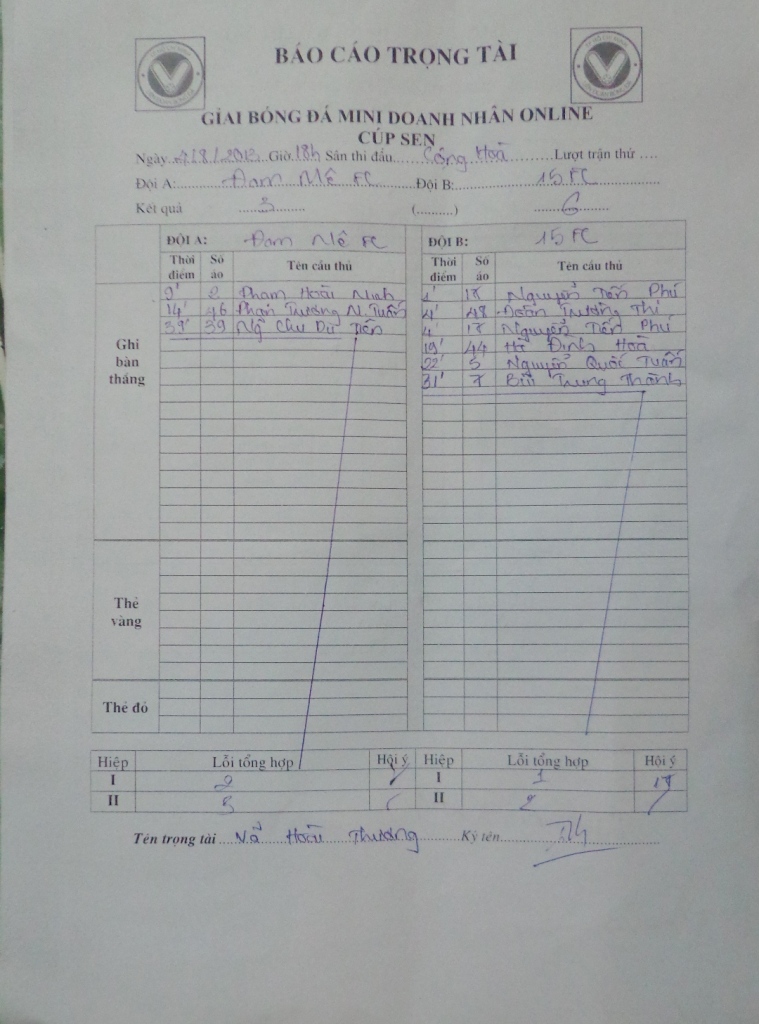 BÁO CÁO TRỌNG TÀI
GIẢI BÓNG ĐÁ MINI DOANH NHÂN ONLINE
CÚP SEN
Ngày /8/2013 Giờ 18h Sân thi đấu Cộng Hoà Lượt trận thứ ....
Đội A: Đam Mê FC Đội B: 15 FC
Kết quả 3 (..........) 6
ĐỘI A: Đam Mê FC ĐỘI B: 15 FC
Thời điểm Số áo Tên cầu thủ Thời điểm Số áo Tên cầu thủ
Ghi bàn thắng
9' 2 Phạm Hoài Ninh 1' Nguyễn Tiến Phú
14' 46 Phan Trương N. Tuấn 4' 48 Đoàn Trương Thi
39' 39 Ngô Chu Dũ Tiến 4' Nguyễn Tiến Phú
19' 44 Hồ Đình Hoà
22' 5 Nguyễn Quốc Tuấn
31' 7 Bùi Trung Thành
Thẻ vàng
Thẻ đỏ
Hiệp Lỗi tổng hợp Hội ý Hiệp Lỗi tổng hợp Hội ý
I 2 I 1
II 3 II 2
Tên trọng tài Võ Hoài Thương Ký tên